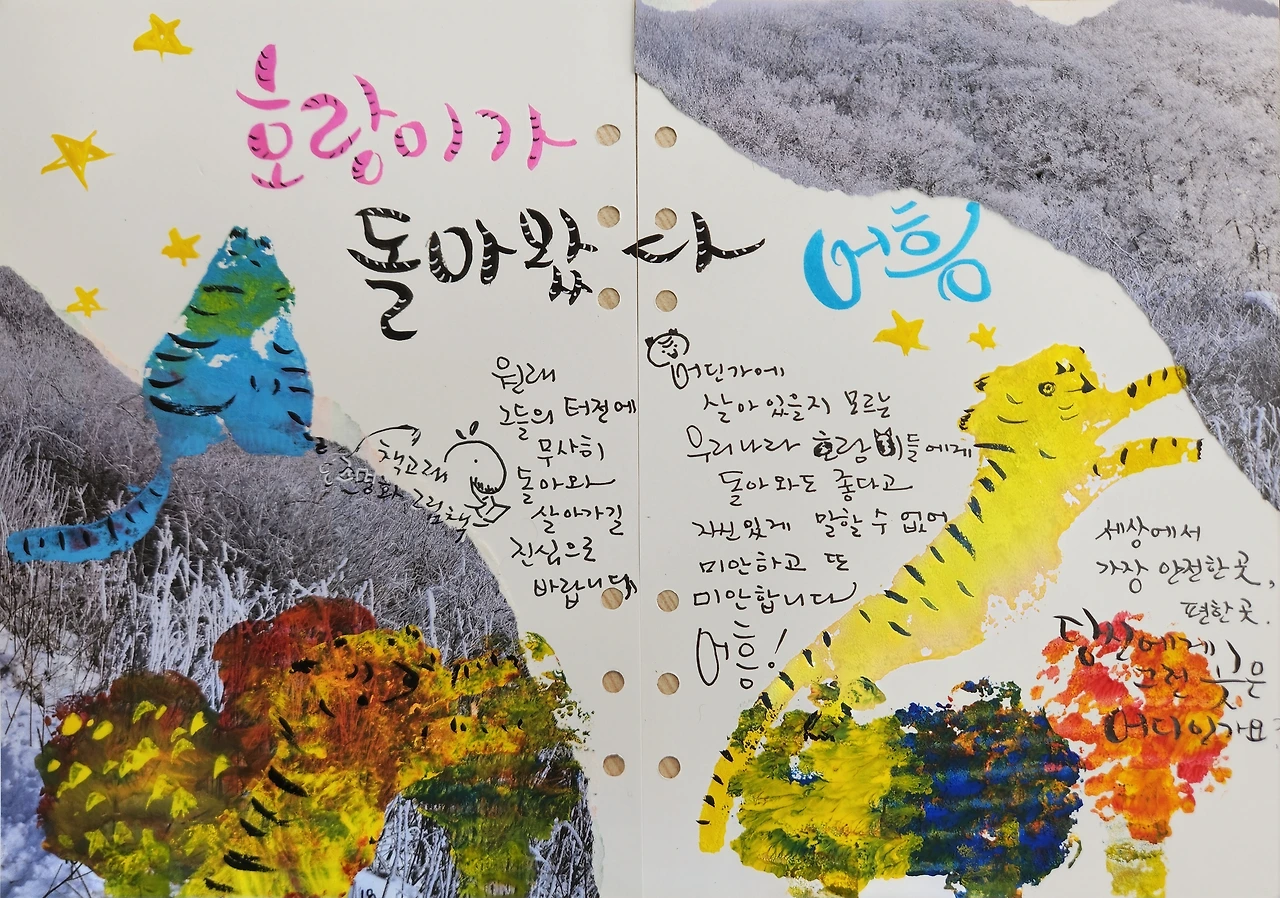 호랑이가
돌아왔다
어흥
원래
그들의 터전에
무사히
돌아와
살아가길
진심으로
바랍니다
책고래
그림책
어딘가에
살아 있을지 모르는
우리나라 호랑이들에게
돌아와도 좋다고
자신있게 말할 수 없어
미안하고 또
미안합니다
어흥!
세상에서
가장 안전한 곳,
편한 곳.
당신에게
그런 곳은
어디인가요?